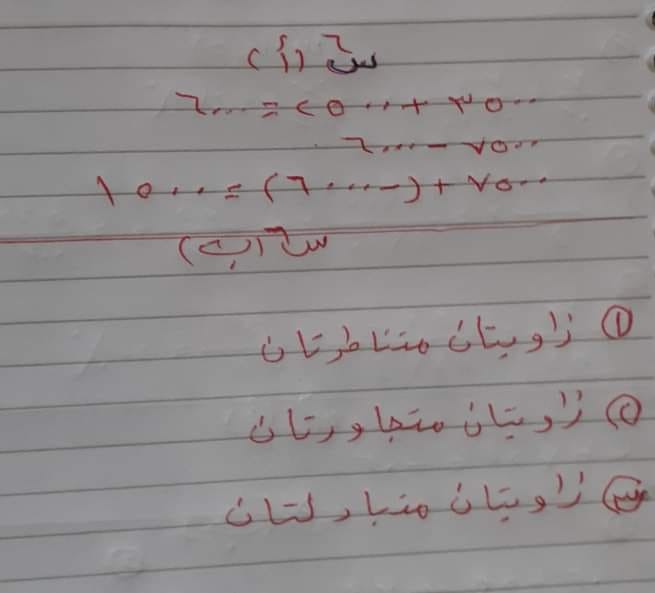 س٦ (أ)
٣٥٠٠ + ٢٥٠٠ = ٦٠٠٠
٧٥٠٠ − ٦٠٠٠
٧٥٠٠ + (−٦٠٠٠) = ١٥٠٠
س٦ (ب)
① زاويتان متناظرتان
② زاويتان متجاورتان
③ زاويتان متبادلتان